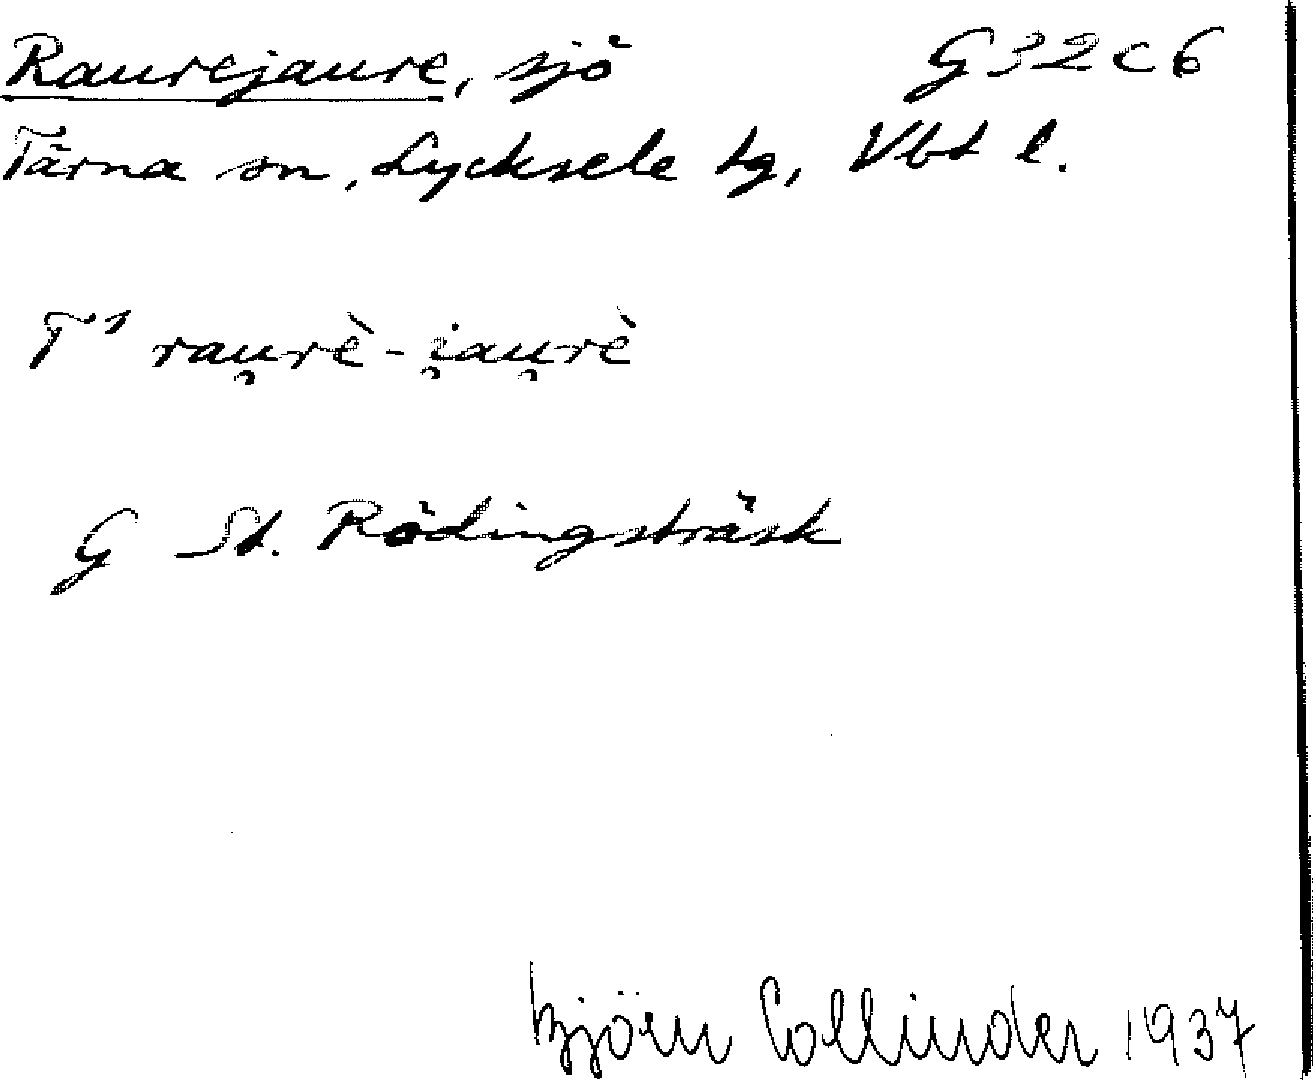 Raurejaure, sjö G32c6
Tärna sn, Lycksele tg, Vbt l.
T¹ rau̯rè-i̯au̯rè
G St. Rödingsträsk
Björn Collinder 1937